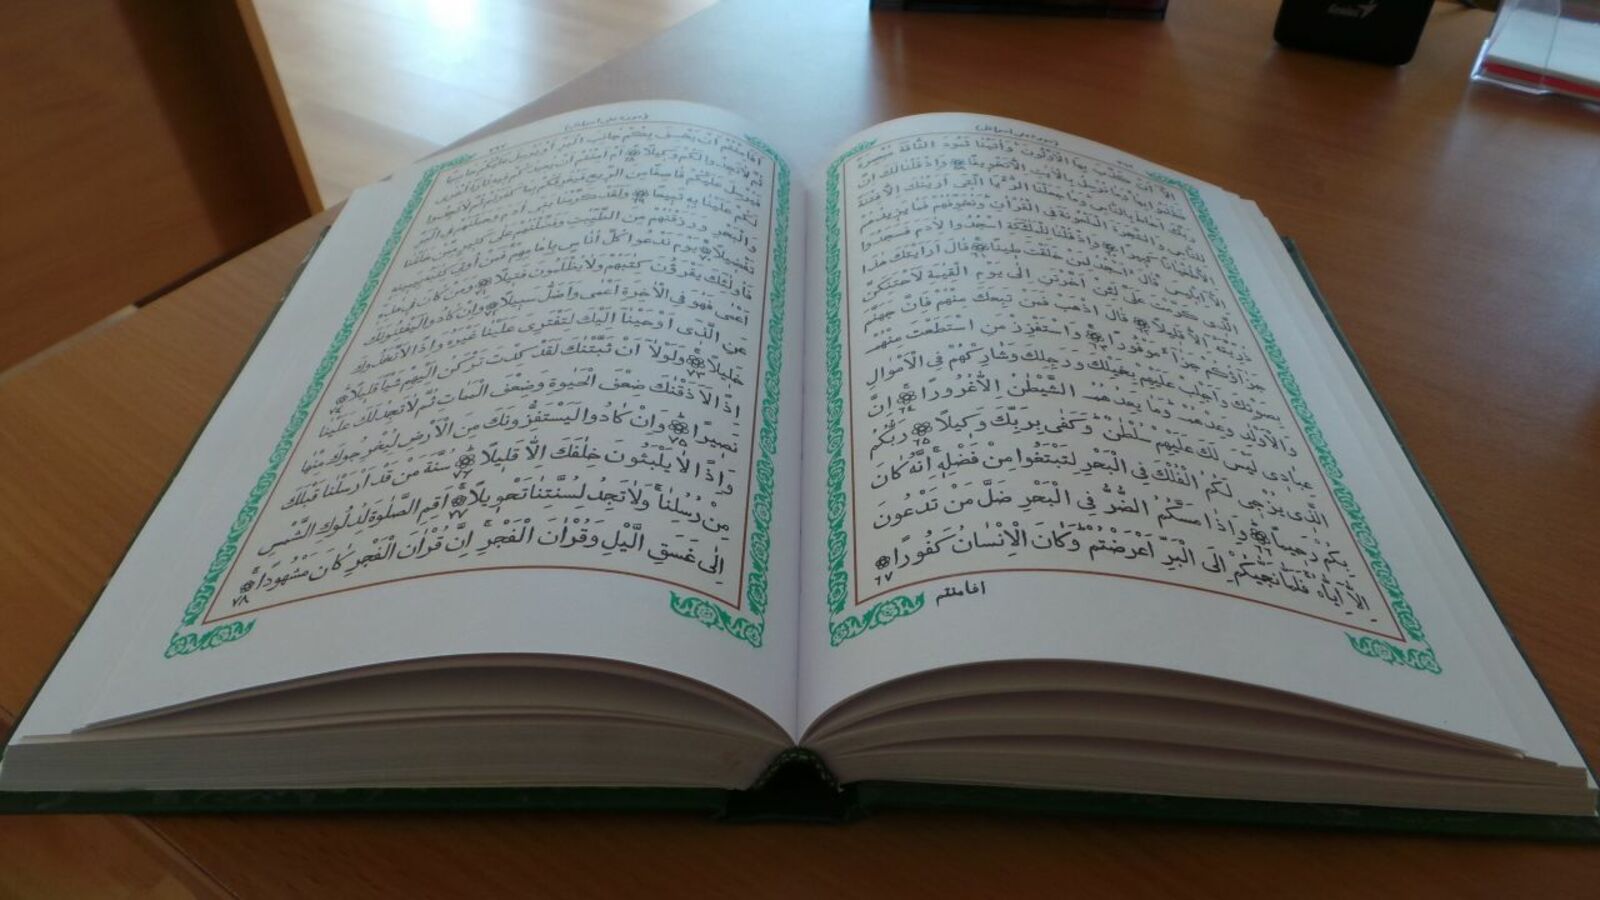 (سورة بنى اسرائيل)
اِلَّا اَنْ كَذَّبَ بِهَا الْاَوَّلُونَ وَاٰتَيْنَا ثَمُودَ النَّاقَةَ مُبْصِرَةً
فَظَلَمُوا بِهَا وَمَا نُرْسِلُ بِالْاٰيَاتِ اِلَّا تَخْوِيفًا ٥٩ وَاِذْ قُلْنَا لَكَ اِنَّ
رَبَّكَ اَحَاطَ بِالنَّاسِ وَمَا جَعَلْنَا الرُّءْيَا الَّتِى اَرَيْنَاكَ اِلَّا فِتْنَةً
لِلنَّاسِ وَالشَّجَرَةَ الْمَلْعُونَةَ فِى الْقُرْاٰنِ وَنُخَوِّفُهُمْ فَمَا يَزِيدُهُمْ
اِلَّا طُغْيَانًا كَبِيرًا ٦٠ وَاِذْ قُلْنَا لِلْمَلٰئِكَةِ اسْجُدُوا لِاٰدَمَ فَسَجَدُوا
اِلَّا اِبْلِيسَ قَالَ ءَاَسْجُدُ لِمَنْ خَلَقْتَ طِينًا ٦١ قَالَ اَرَاَيْتَكَ هٰذَا
الَّذِى كَرَّمْتَ عَلَىَّ لَئِنْ اَخَّرْتَنِ اِلٰى يَوْمِ الْقِيٰمَةِ لَاَحْتَنِكَنَّ
ذُرِّيَّتَهُ اِلَّا قَلِيلًا ٦٢ قَالَ اذْهَبْ فَمَنْ تَبِعَكَ مِنْهُمْ فَاِنَّ جَهَنَّمَ
جَزَاؤُكُمْ جَزَاءً مَوْفُورًا ٦٣ وَاسْتَفْزِزْ مَنِ اسْتَطَعْتَ مِنْهُمْ
بِصَوْتِكَ وَاَجْلِبْ عَلَيْهِمْ بِخَيْلِكَ وَرَجِلِكَ وَشَارِكْهُمْ فِى الْاَمْوَالِ
وَالْاَوْلَادِ وَعِدْهُمْ وَمَا يَعِدُهُمُ الشَّيْطٰنُ اِلَّا غُرُورًا ٦٤ اِنَّ
عِبَادِى لَيْسَ لَكَ عَلَيْهِمْ سُلْطٰنٌ وَكَفٰى بِرَبِّكَ وَكِيلًا ٦٥ رَبُّكُمُ
الَّذِى يُزْجِى لَكُمُ الْفُلْكَ فِى الْبَحْرِ لِتَبْتَغُوا مِنْ فَضْلِهِ اِنَّهُ كَانَ
بِكُمْ رَحِيمًا ٦٦ وَاِذَا مَسَّكُمُ الضُّرُّ فِى الْبَحْرِ ضَلَّ مَنْ تَدْعُونَ
اِلَّا اِيَّاهُ فَلَمَّا نَجّٰيكُمْ اِلَى الْبَرِّ اَعْرَضْتُمْ وَكَانَ الْاِنْسَانُ كَفُورًا ٦٧
افامنتم
(سورة بنى اسرائيل)
اَفَاَمِنْتُمْ اَنْ يَخْسِفَ بِكُمْ جَانِبَ الْبَرِّ اَوْ يُرْسِلَ عَلَيْكُمْ حَاصِبًا
ثُمَّ لَا تَجِدُوا لَكُمْ وَكِيلًا ٦٨ اَمْ اَمِنْتُمْ اَنْ يُعِيدَكُمْ فِيهِ تَارَةً اُخْرٰى
فَيُرْسِلَ عَلَيْكُمْ قَاصِفًا مِنَ الرِّيحِ فَيُغْرِقَكُمْ بِمَا كَفَرْتُمْ ثُمَّ لَا تَجِدُوا
لَكُمْ عَلَيْنَا بِهِ تَبِيعًا ٦٩ وَلَقَدْ كَرَّمْنَا بَنِى اٰدَمَ وَحَمَلْنَاهُمْ فِى الْبَرِّ
وَالْبَحْرِ وَرَزَقْنٰهُمْ مِنَ الطَّيِّبَاتِ وَفَضَّلْنَاهُمْ عَلٰى كَثِيرٍ مِمَّنْ خَلَقْنَا
تَفْضِيلًا ٧٠ يَوْمَ نَدْعُوا كُلَّ اُنَاسٍ بِاِمَامِهِمْ فَمَنْ اُوتِىَ كِتَابَهُ بِيَمِينِهِ
فَاُولٰئِكَ يَقْرَؤُنَ كِتٰبَهُمْ وَلَا يُظْلَمُونَ فَتِيلًا ٧١ وَمَنْ كَانَ فِى هٰذِهِ
اَعْمٰى فَهُوَ فِى الْاٰخِرَةِ اَعْمٰى وَاَضَلُّ سَبِيلًا ٧٢ وَاِنْ كَادُوا لَيَفْتِنُونَكَ
عَنِ الَّذِى اَوْحَيْنَا اِلَيْكَ لِتَفْتَرِىَ عَلَيْنَا غَيْرَهُ وَاِذًا لَاتَّخَذُوكَ
خَلِيلًا ٧٣ وَلَوْلَا اَنْ ثَبَّتْنَاكَ لَقَدْ كِدْتَ تَرْكَنُ اِلَيْهِمْ شَيْئًا قَلِيلًا ٧٤
اِذًا لَاَذَقْنَاكَ ضِعْفَ الْحَيٰوةِ وَضِعْفَ الْمَمَاتِ ثُمَّ لَا تَجِدُ لَكَ عَلَيْنَا
نَصِيرًا ٧٥ وَاِنْ كَادُوا لَيَسْتَفِزُّونَكَ مِنَ الْاَرْضِ لِيُخْرِجُوكَ مِنْهَا
وَاِذًا لَا يَلْبَثُونَ خِلٰفَكَ اِلَّا قَلِيلًا ٧٦ سُنَّةَ مَنْ قَدْ اَرْسَلْنَا قَبْلَكَ
مِنْ رُسُلِنَا وَلَا تَجِدُ لِسُنَّتِنَا تَحْوِيلًا ٧٧ اَقِمِ الصَّلٰوةَ لِدُلُوكِ الشَّمْسِ
اِلٰى غَسَقِ الَّيْلِ وَقُرْاٰنَ الْفَجْرِ اِنَّ قُرْاٰنَ الْفَجْرِ كَانَ مَشْهُودًا ٧٨
Genius